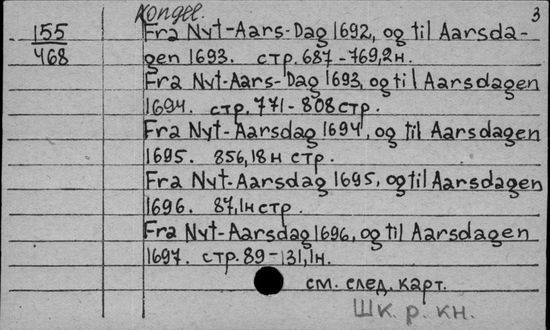 Kongel.
3
155
468
Fra Nyt-Aars-Dag 1692, og til Aarsda-
gen 1693. стр. 687-769,2н.
Fra Nyt-Aars-Dag 1693, og til Aarsdagen
1694. стр. 771-808 стр.
Fra Nyt-Aarsdag 1694, og til Aarsdagen
1695. 856,18н стр.
Fra Nyt-Aarsdag 1695, og til Aarsdagen
1696. 87,1н стр.
Fra Nyt-Aarsdag 1696, og til Aarsdagen
1697. стр. 89-131,1н.
см. след. карт.
Шк. р. кн.